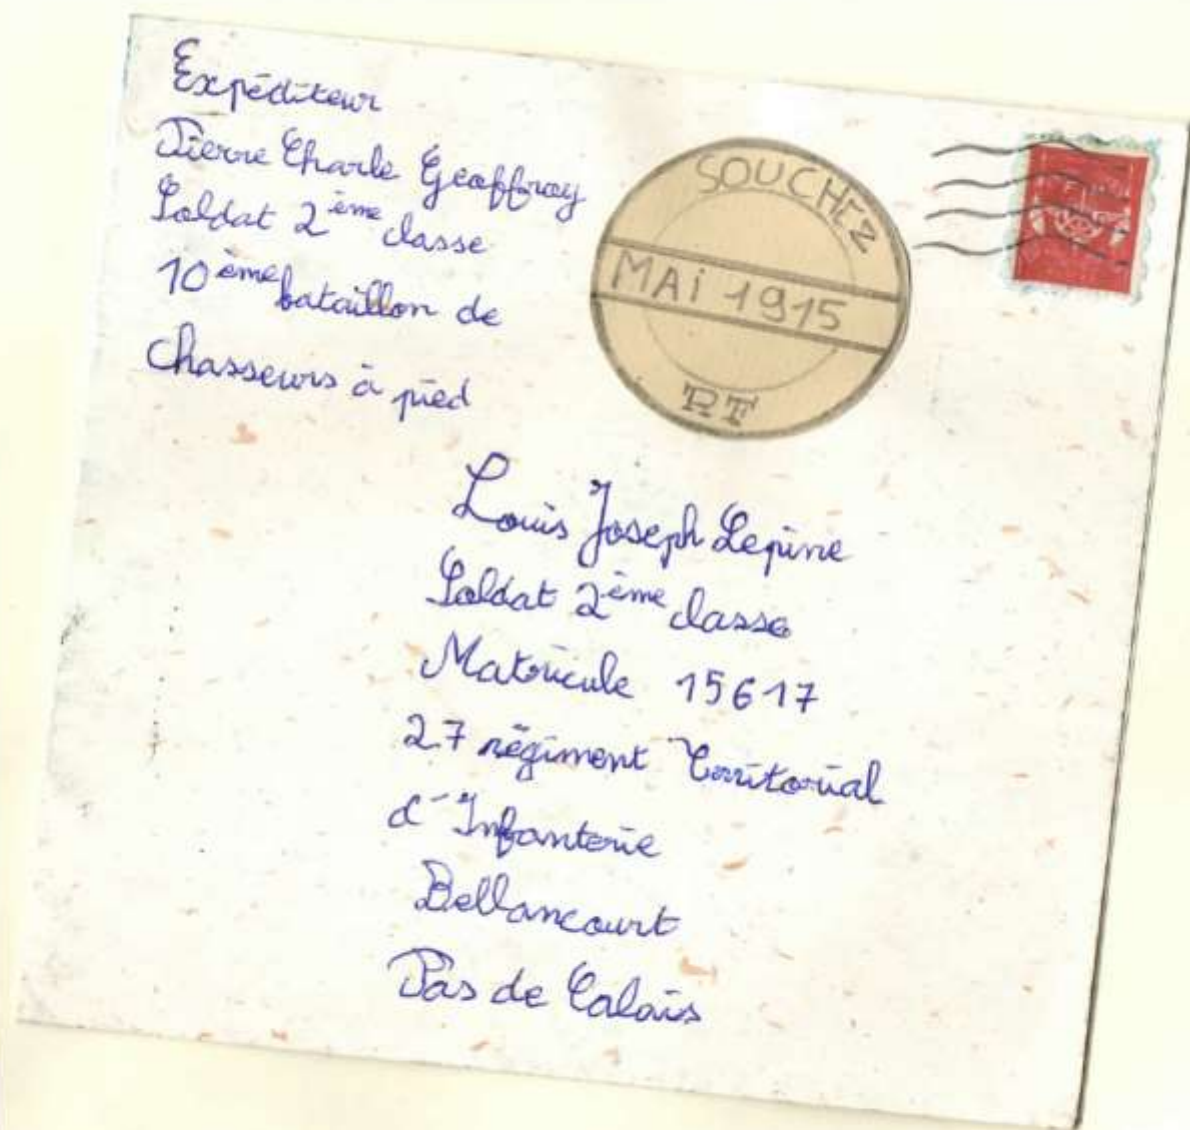 Expéditeur
Pierre Charle Geoffroy
Soldat 2ème classe
10ème bataillon de
chasseurs à pied
SOUCHEZ
MAi 1915
Louis Joseph Lepine
Soldat 2ème classe
Matricule 15617
27 régiment Territorial
d'Infanterie
Bellancourt
Pas de Calais